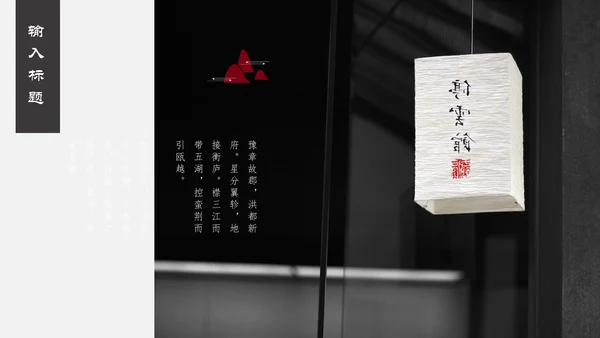 输入标题
豫章故郡，洪都新
府。星分翼轸，地
接衡庐。襟三江而
带五湖，控蛮荆而
引瓯越。
停雲館